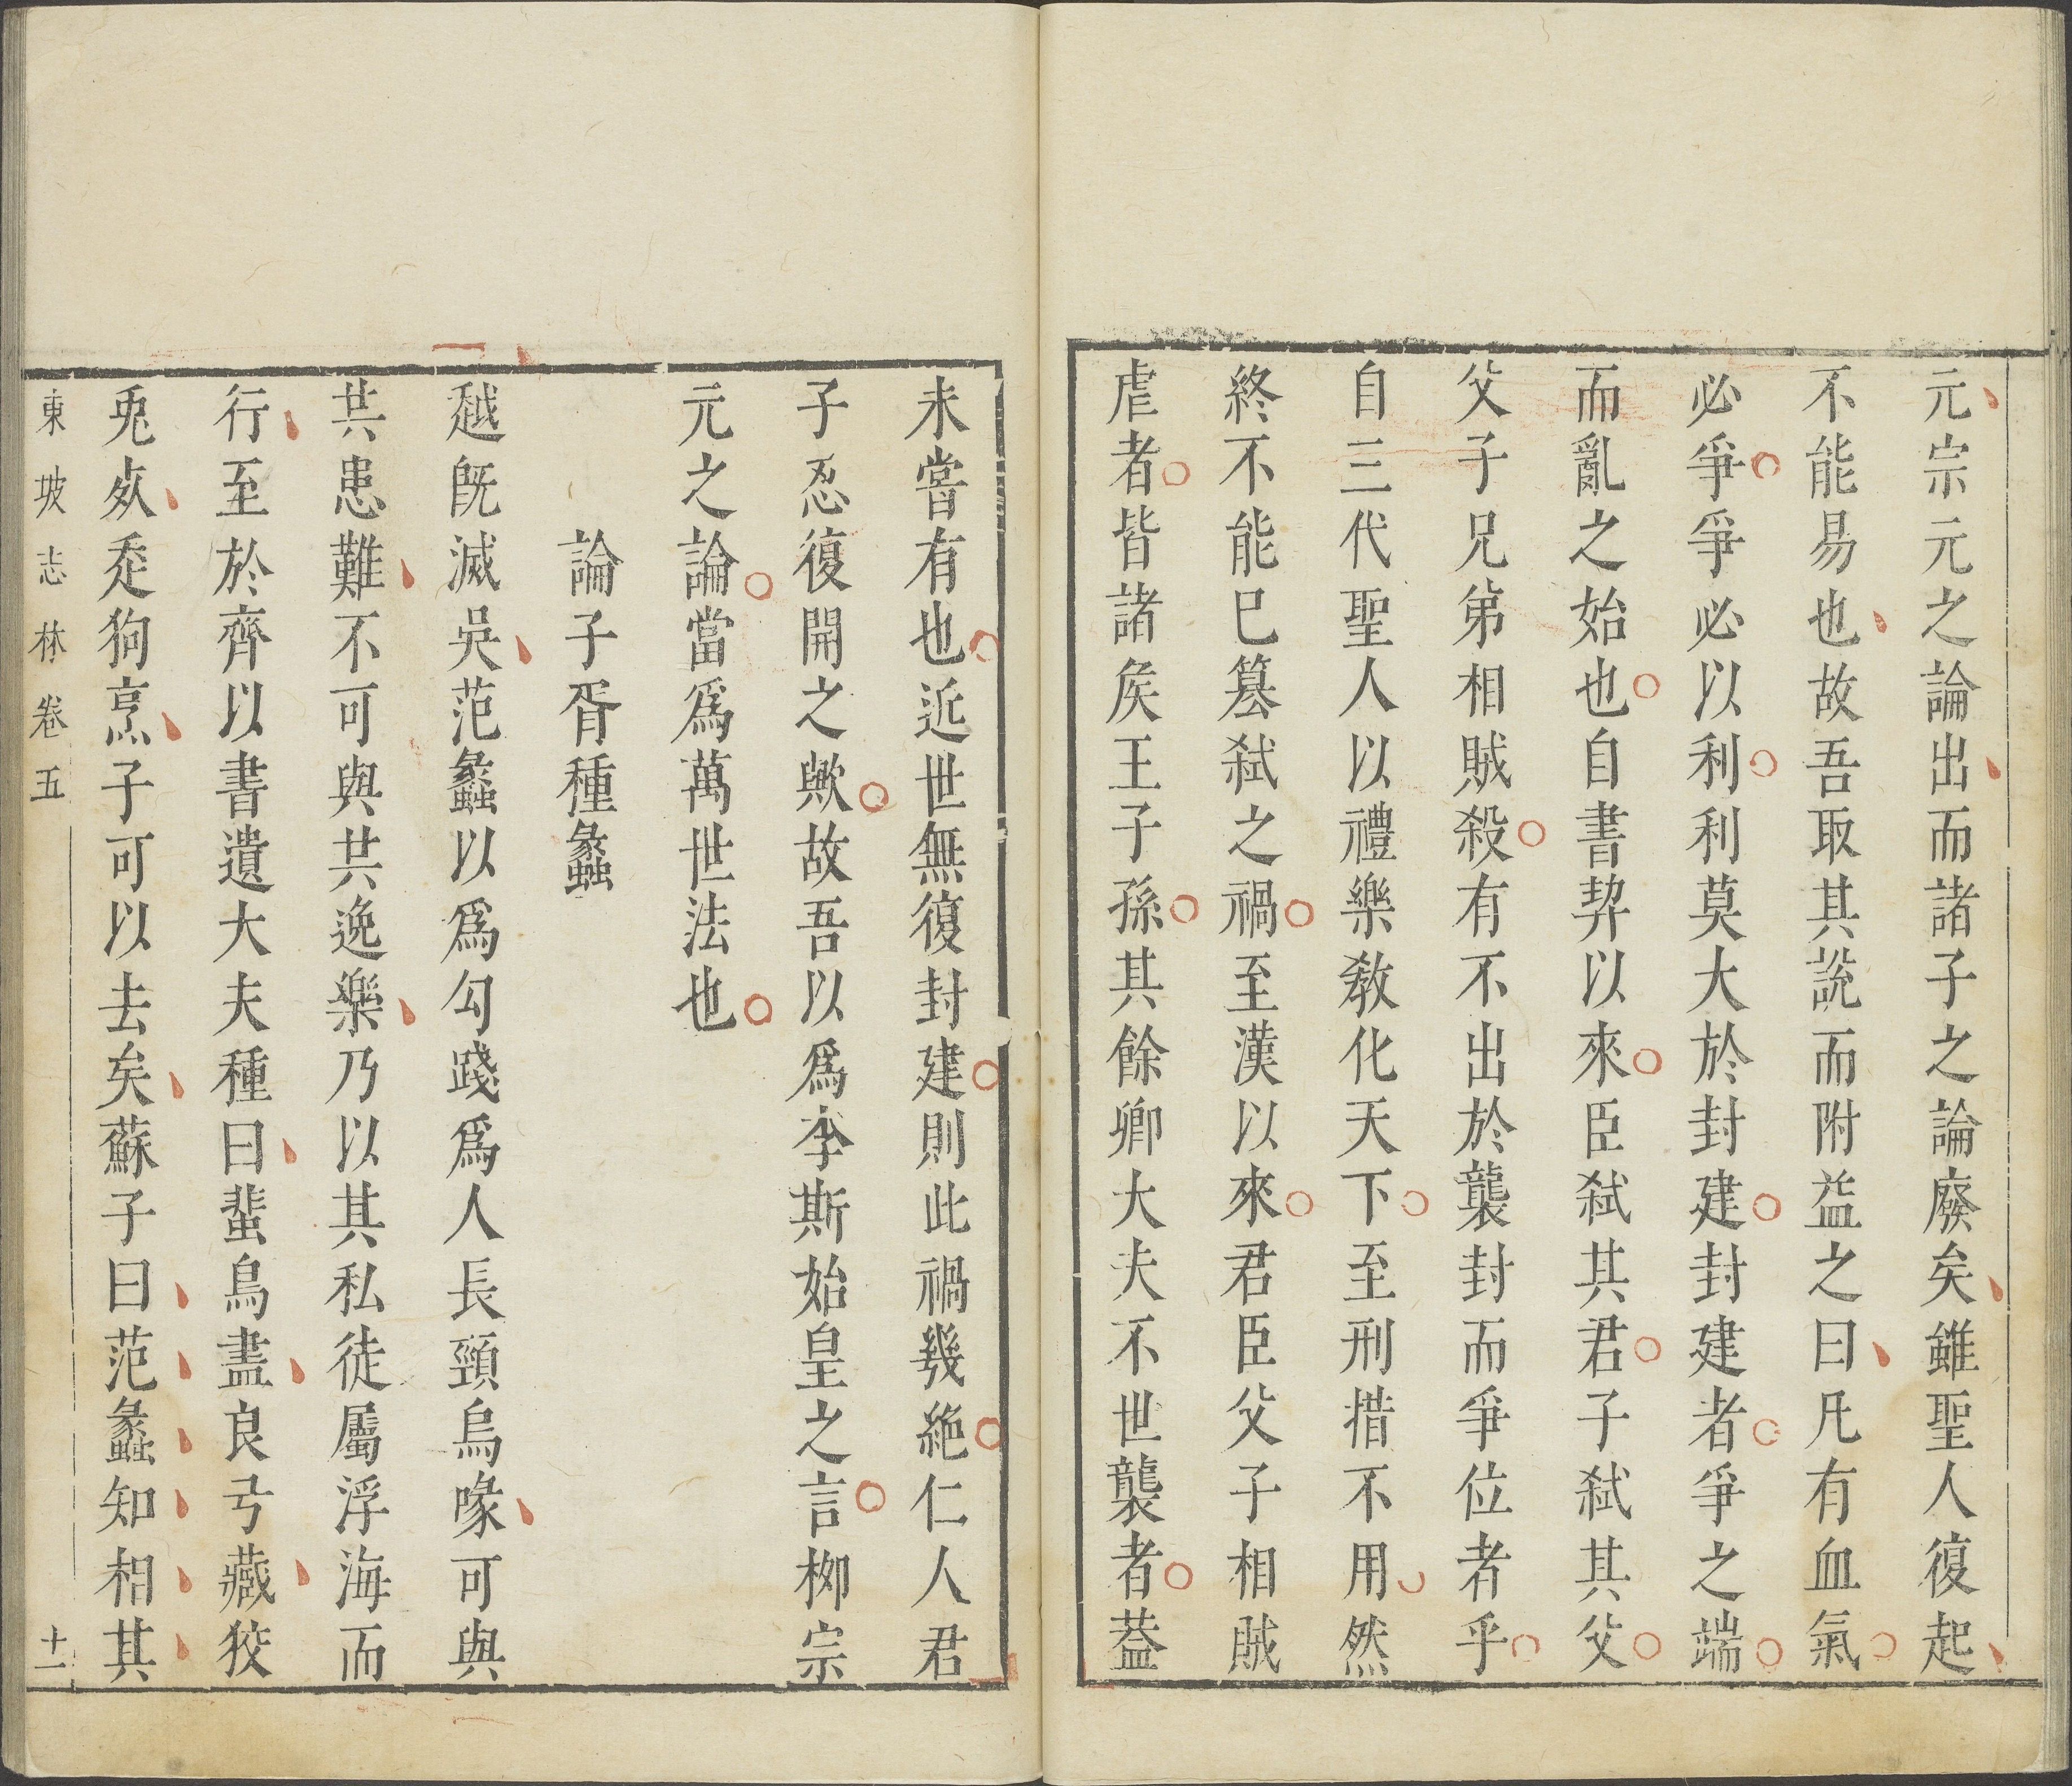 元宗元之論出而諸子之論廢矣雖聖人復起
不能易也故吾取其説而附益之曰凡有血氣
必爭爭必以利利莫大於封建封建者爭之端
而亂之始也自書契以來臣弑其君子弑其父
父子兄弟相賊殺有不出於襲封而爭位者乎
自三代聖人以禮樂敎化天下至刑措不用然
終不能巳篡弑之禍至漢以來君臣父子相賊
虐者皆諸矦王子孫其餘卿大夫不世襲者葢
未嘗有也近世無復封建則此禍幾絶仁人君
子忍復開之歟故吾以爲李斯始皇之言柳宗
元之論當爲萬世法也
論子胥種蠡
越旣滅吳范蠡以爲勾踐爲人長頸烏喙可與
共患難不可與共逸樂乃以其私徒屬浮海而
行至於齊以書遺大夫種曰蜚鳥盡良弓藏狡
兎死走狗烹子可以去矣蘇子曰范蠡知相其
東坡志林卷五
十一